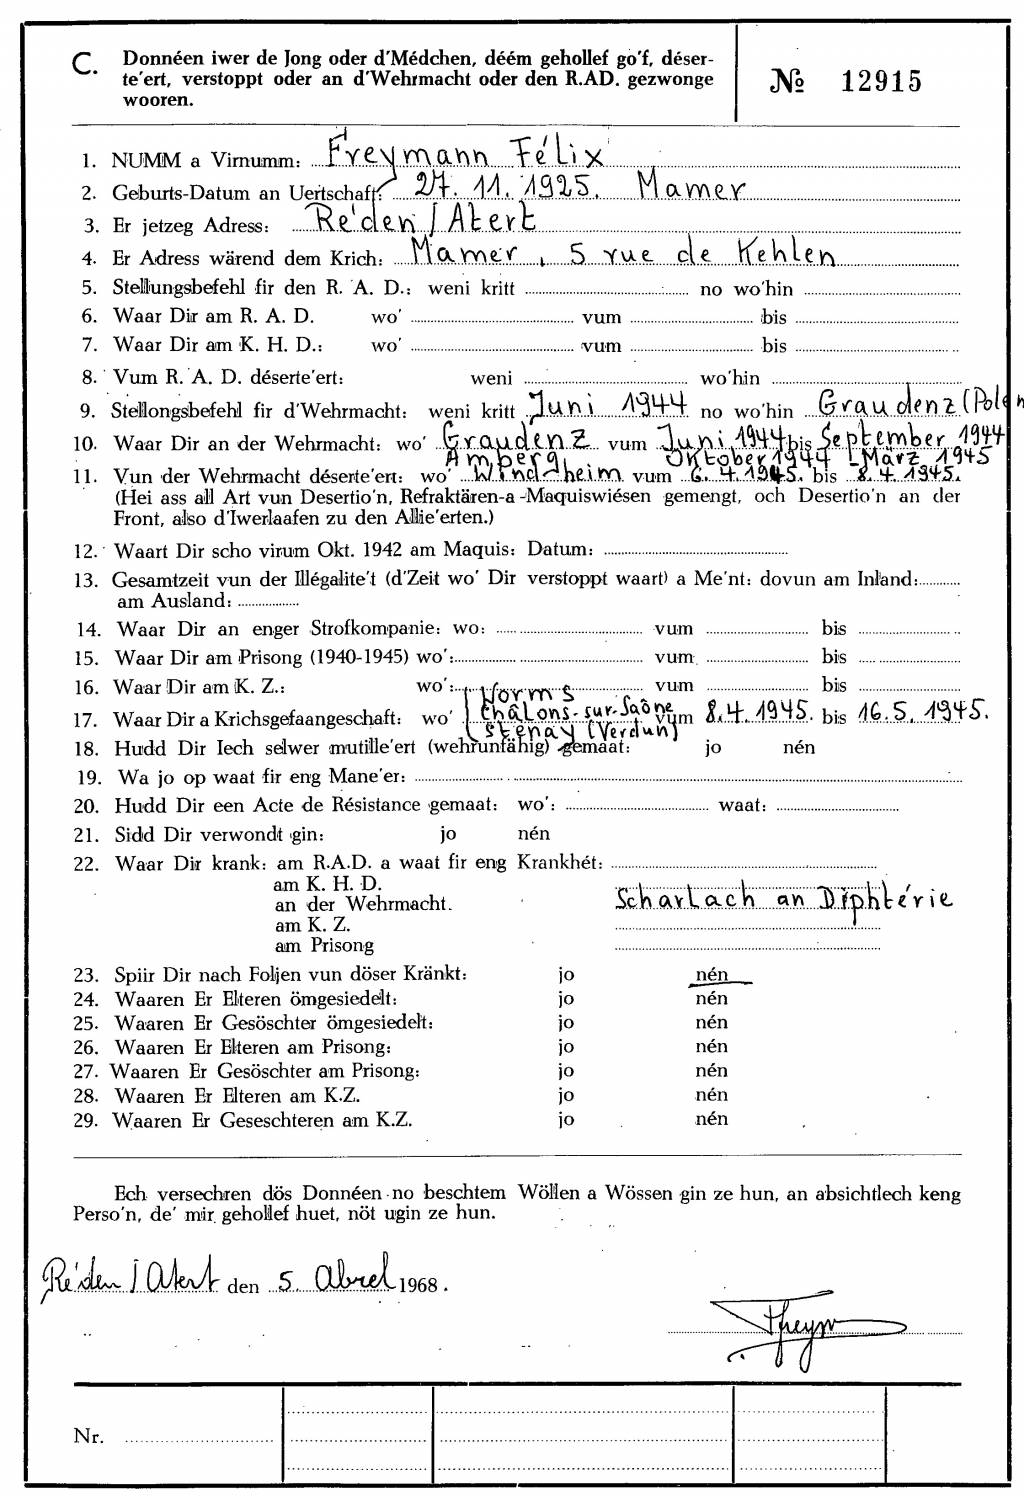 C. Donnéen iwer de Jong oder d'Médchen, déém gehollef go'f, déser-
te'ert, verstoppt oder an d'Wehrmacht oder den R.AD. gezwonge
wooren.
№ 12915
1. NUMM a Virnumm: Freymann Félix
2. Geburts-Datum an Uertschaft: 27. 11. 1925. Mamer
3. Er jetzeg Adress: Re'den / Atert
4. Er Adress wärend dem Krich: Mamer, 5 rue de Kehlen
5. Stellungsbefehl fir den R. A. D.: weni kritt no wo'hin
6. Waar Dir am R. A. D. wo' vum bis
7. Waar Dir am K. H. D.: wo' vum bis
8. Vum R. A. D. déserte'ert: weni wo'hin
9. Stellongsbefehl fir d'Wehrmacht: weni kritt Juni 1944 no wo'hin Graudenz (Polen
10. Waar Dir an der Wehrmacht: wo' Graudenz vum Juni 1944 bis September 1944
Amberg Oktober 1944 - März 1945
11. Vun der Wehrmacht déserte'ert: wo' Windsheim vum 6. 4. 1945. bis 8. 4. 1945.
(Hei ass all Art vun Desertio'n, Refraktären-a-Maquiswiésen gemengt, och Desertio'n an der
Front, also d'Iwerlaafen zu den Allie'erten.)
12. Waart Dir scho virum Okt. 1942 am Maquis: Datum:
13. Gesamtzeit vun der Illégalite't (d'Zeit wo' Dir verstoppt waart) a Me'nt: dovun am Inland:
am Ausland:
14. Waar Dir an enger Strofkompanie: wo: vum bis
15. Waar Dir am Prisong (1940-1945) wo': vum bis
16. Waar Dir am K. Z.: wo': vum bis
Worms
17. Waar Dir a Krichsgefaangeschaft: wo' Châlons-sur-Saône vum 8.4.1945. bis 16.5.1945.
Stenay (Verdun)
18. Hudd Dir Iech selwer mutille'ert (wehrunfähig) gemaat: jo nén
19. Wa jo op waat fir eng Mane'er:
20. Hudd Dir een Acte de Résistance gemaat: wo': waat:
21. Sidd Dir verwondt gin: jo nén
22. Waar Dir krank: am R.A.D. a waat fir eng Krankhét:
am K. H. D.
an der Wehrmacht. Scharlach an Diphtérie
am K. Z.
am Prisong
23. Spiir Dir nach Foljen vun döser Kränkt: jo nén
24. Waaren Er Elteren ömgesiedelt: jo nén
25. Waaren Er Gesöschter ömgesiedelt: jo nén
26. Waaren Er Elteren am Prisong: jo nén
27. Waaren Er Gesöschter am Prisong: jo nén
28. Waaren Er Elteren am K.Z. jo nén
29. Waaren Er Geseschteren am K.Z. jo nén
Ech versechren dös Donnéen no beschtem Wöllen a Wössen gin ze hun, an absichtlech keng
Perso'n, de' mir gehollef huet, nöt ugin ze hun.
Re'den / Atert den 5. Abrel 1968.
Nr.